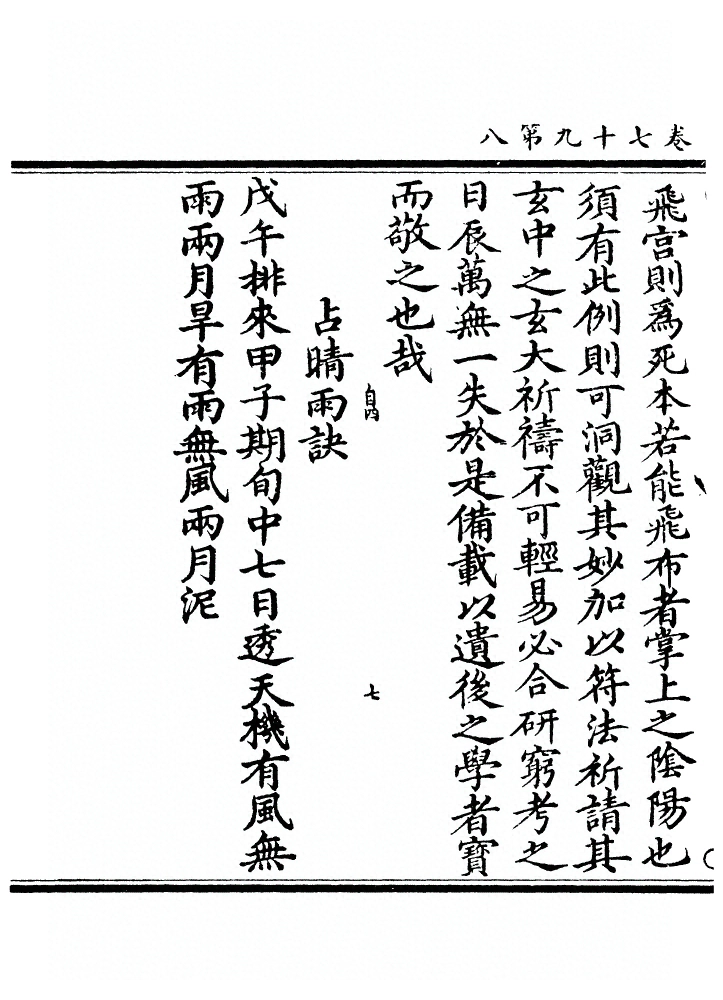 卷七十九第八
飛宮則為死本若能飛布者掌上之陰陽也
須有此例則可洞觀其妙加以符法祈請其
玄中之玄大祈禱不可輕易必合研窮考之
日辰萬無一失於是備載以遺後之學者寶
而敬之也哉
占晴雨訣
自內
七
戊午排來甲子期旬中七日透天機有風無
雨兩月旱有雨無風兩月泥